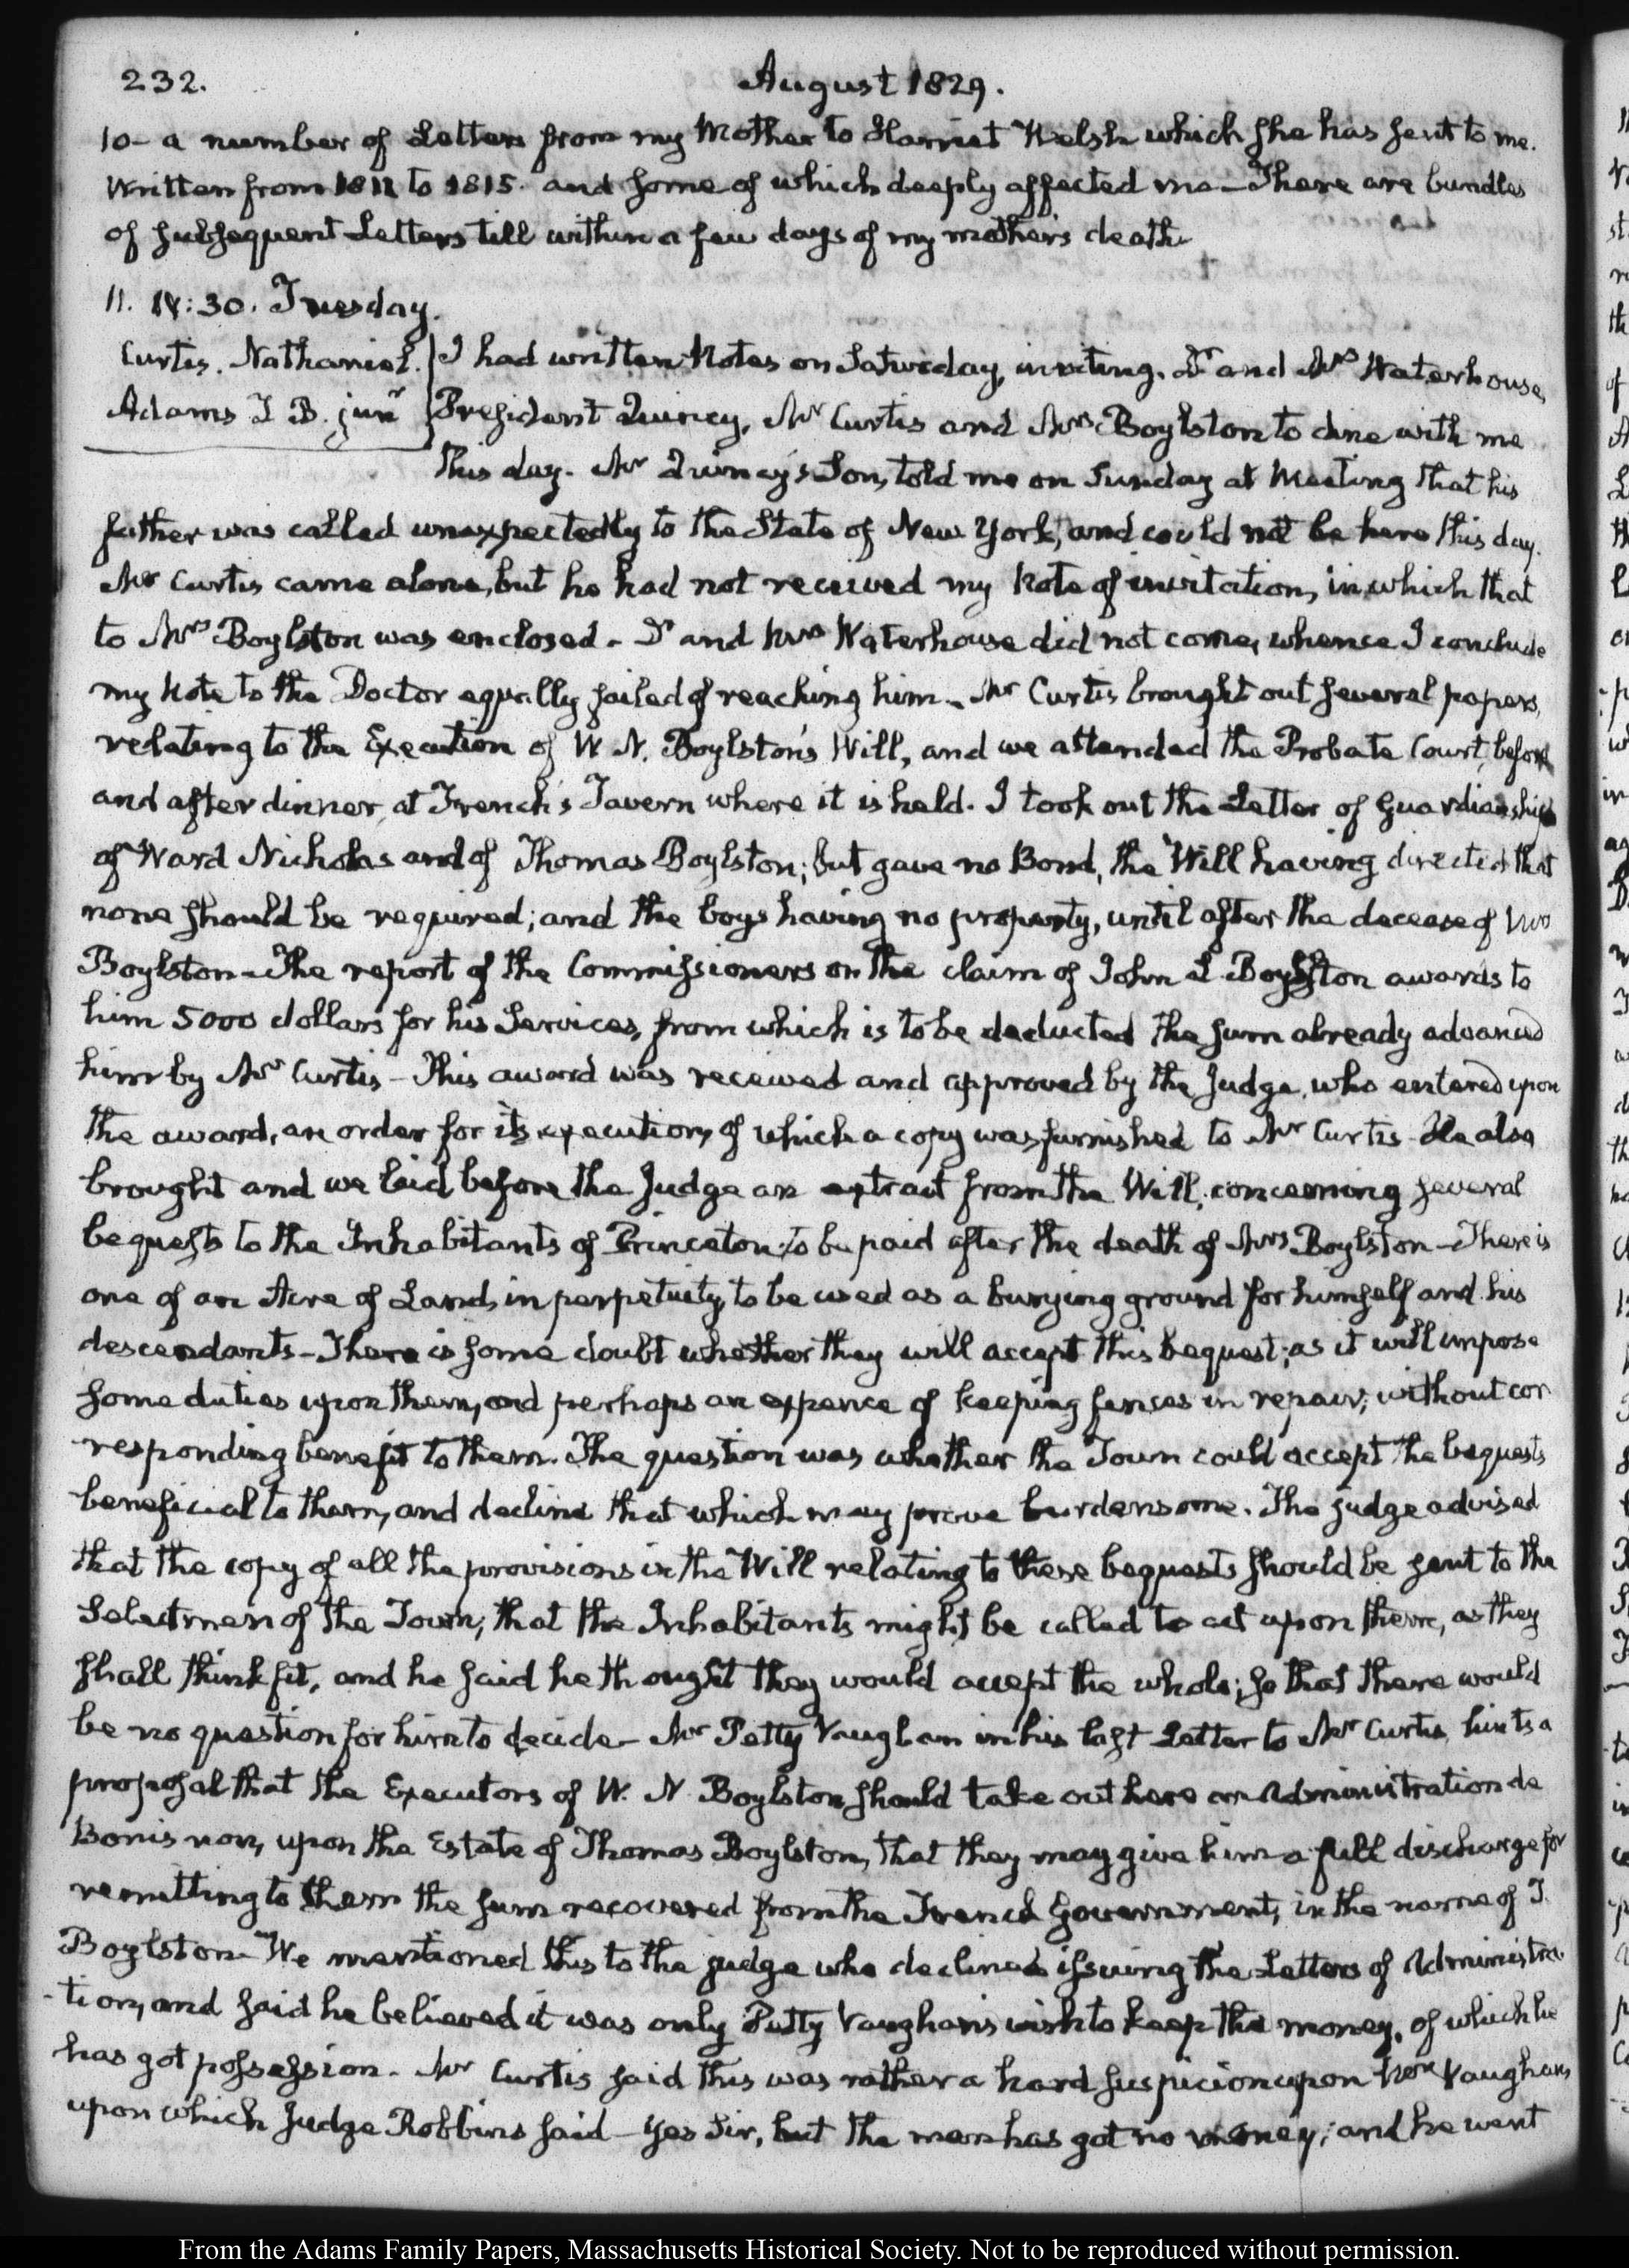 232.
August 1829.
10- a number of Letters from my Mother to Harriet Welsh which she has sent to me.
Written from to 1815. and some of which deeply affected me – There are bundles
of subsequent Letters till within a few days of my mother's death
11. IV:30. Tuesday.
Curtis. Nathaniel. I had written Notes on Saturday, inviting. Dr and Mrs Waterhouse,
Adams J. B. junr President Quincy, Mr Curtis and Mrs Boylston to dine with me
this day. Mr Quincy's Son, told me on Sunday at Meeting that his
father was called unexpectedly to the State of New York, and could not be here this day.
Mr Curtis came alone, but he had not received my Note of invitation, in which that
to Mrs Boylston was enclosed – Dr and Mrs Waterhouse did not come, whence I conclude
my Note to the Doctor equally failed of reaching him – Mr Curtis brought out several papers,
relating to the Execution of W. N. Boylston's Will, and we attended the Probate Court, before
and after dinner, at French's Tavern where it is held. I took out the Letter of Guardianship
of Ward Nicholas and of Thomas Boylston; but gave no Bond, the Will having directed that
none should be required; and the boys having no property, until after the decease of Mrs
Boylston – The report of the Commissioners on the claim of John L. Boylston awards to
him 5000 dollars for his Services, from which is to be deducted the sum already advanced
him by Mr Curtis – This award was received and approved by the Judge, who entered upon
the award, an order for its execution, of which a copy was furnished to Mr Curtis – He also
brought and we laid before the Judge an extract from the Will, concerning several
bequests to the Inhabitants of Princeton; to be paid after the death of Mrs Boylston – There is
one of an Acre of Land, in perpetuity, to be used as a burying ground for himself and his
descendants – There is some doubt whether they will accept this bequest; as it will impose
some duties upon them, and perhaps an expence of keeping fences in repair; without cor
-responding benefit to them. The question was whether the Town could accept the bequests
beneficial to them, and decline that which may prove burdensome. The judge advised
that the copy of all the provisions in the Will relating to these bequests should be sent to the
Selectmen of the Town; that the Inhabitants might be called to act upon them, as they
shall think fit, and he said he thought they would accept the whole; so that there would
be no question for him to decide – Mr Petty Vaughan in his last Letter to Mr Curtis, hints a
proposal that the Executors of W. N. Boylston should take out here an Administration de
Bonis non, upon the Estate of Thomas Boylston, that they may give him a full discharge for
remitting to them the sum recovered from the French Government, in the name of T.
Boylston – We mentioned this to the judge who declined issuing the Letters of Administra
-tion, and said he believed it was only Petty Vaughan's wish to keep the money, of which he
has got possession. Mr Curtis said this was rather a hard suspicion upon Mr Vaughan,
upon which Judge Robbins said – Yes Sir, but the man has got no money; and he went
From the Adams Family Papers, Massachusetts Historical Society. Not to be reproduced without permission.